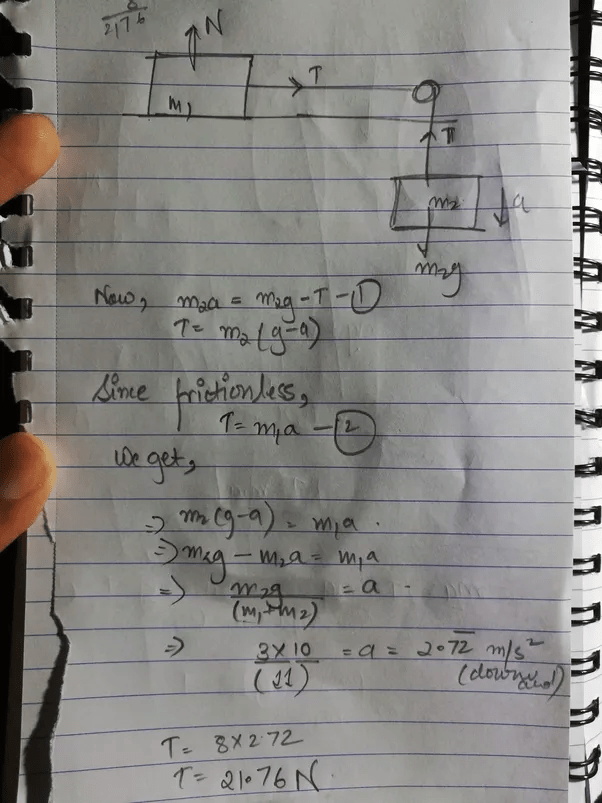 2176
N
T
m₁
T
m₂
a
m₂g
Now, m₂a = m₂g - T - ①
T = m₂(g-a)
Since frictionless,
T = m₁a - ②
We get,
⇒ m₂(g-a) = m₁a.
⇒ m₂g - m₂a = m₁a
⇒ m₂g/(m₁+m₂) = a
⇒ 3×10/(11) = a = 2.7̅2̅ m/s²
(downward)
T = 8×2.72
T = 21.76 N.